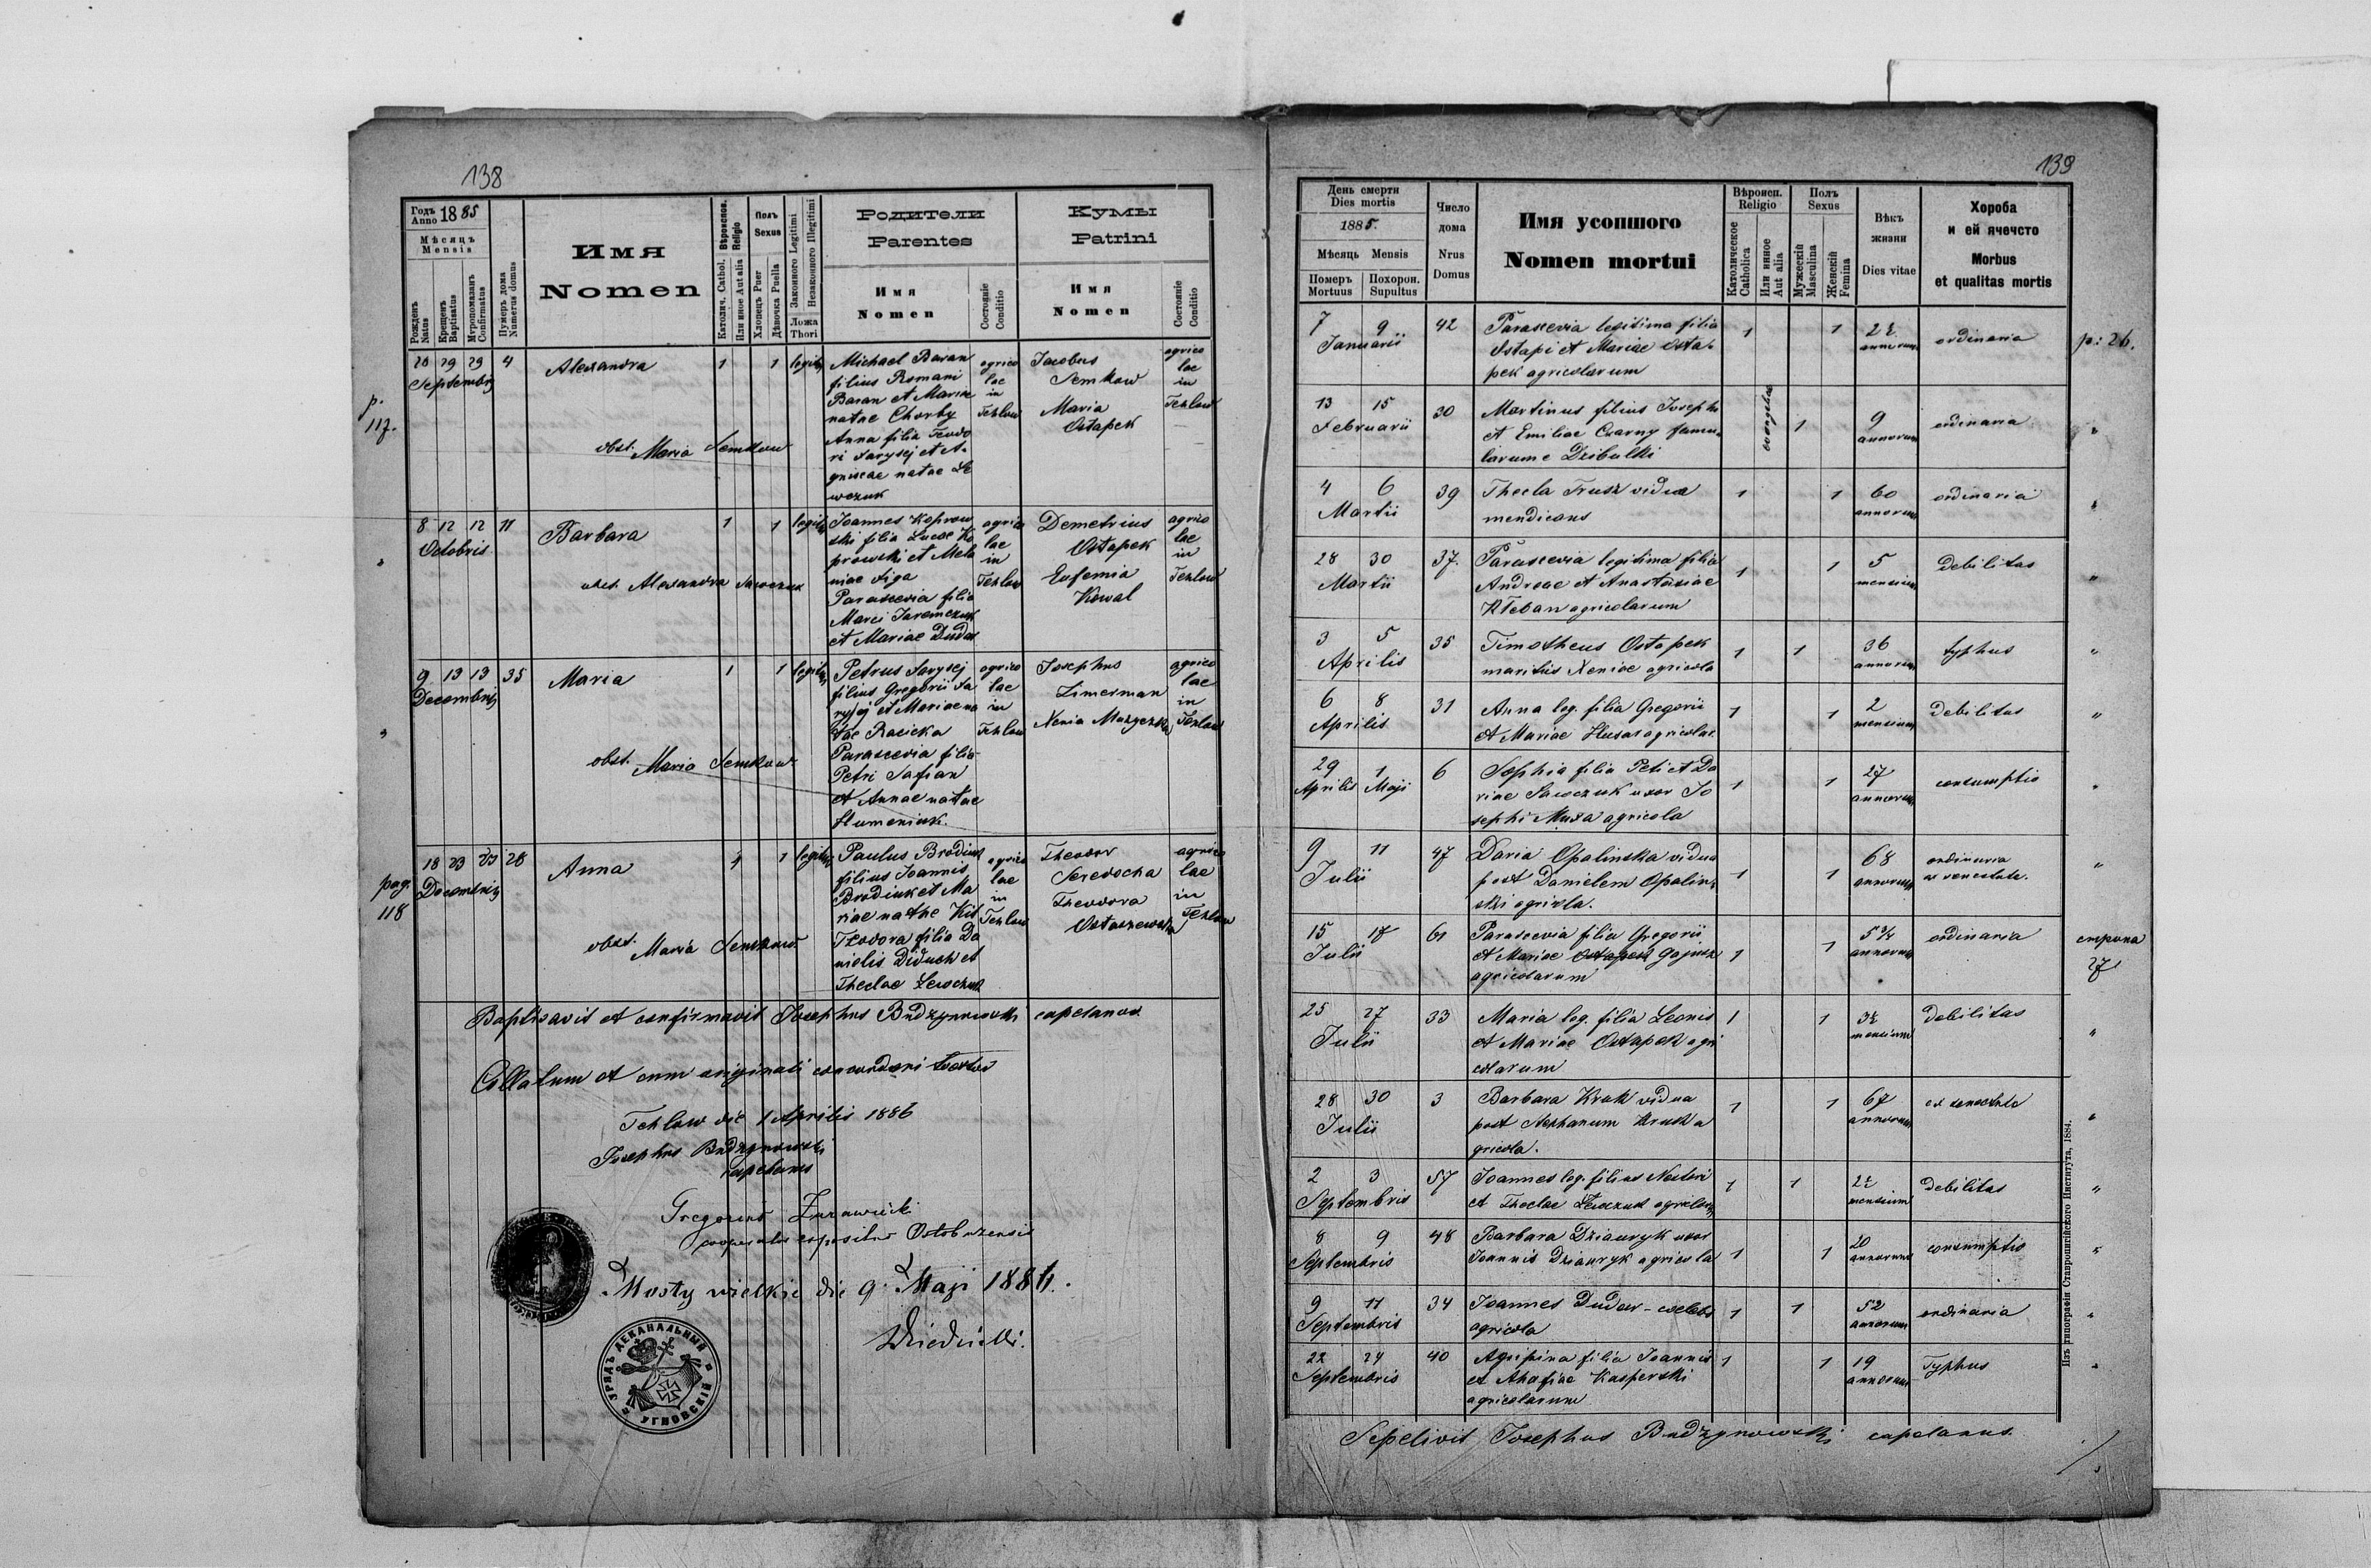 138
Годъ Anno 1885
Мѣсяцъ Mensis
Рожденъ Natus
Крещенъ Baptisatus
Мѵропомазанъ Confirmatus
Нумеръ дома Numerus domus
Имя
Nomen
Вѣроиспов. Religio
Католич. Cathol.
Или иное Aut alia
Полъ Sexus
Хлопецъ Puer
Дѣвочка Puella
Законного Legitimi
Незаконного Illegitimi
Ложа Thori
Родители
Parentes
Имя
Nomen
Состояніе Conditio
Кумы
Patrini
Имя
Nomen
Состояніе Conditio
p. 117.
29 29 4
Septembris
Alexandra
1 1
obst. Maria Semkow
Michael Baran
filius Romani
Baran et Mariae
natae Chorby
Anna filia Teodo
ri Sarysej et A-
gniscae natae Le
wczuk
agrico
lae
in
Tehlow
Jacobus
Semkow
Maria
Ostapek
agrico
lae
in
Tehlow
8 12 12 11
Octobris
Barbara
1 1
obst. Alexandra
Joannes Koprow
ski filia Lucae Ko
prowski et Mela
niae
Parascevia filia
Marci Jaremczuk
et Mariae Dudar
agrico
lae
in
Tehlow
Demetrius
Ostapek
Eufemia
Kowal
agrico
lae
in
Tehlow
9 13 13 35
Decembris
Maria
1 1
obst. Maria Semkow
Petrus Sarysej
filius Gregorii Sa
rysej et Mariae na
tae Racicka
Parascevia filia
Petri Safian
et Annae natae
Humeniuk.
agrico
lae
in
Tehlow
Josephus
Zimerman
Xenia
agrico
lae
in
Tehlow
pag. 118
18 23 23 28
Decembris
Anna
1 1
obst. Maria Semkow
Paulus Brodiuk
filius Joannis
Brodiuk et Ma
riae natae Kit
Teodora filia Da
nielis Diduch et
Theclae Lewczuk
agrico
lae
in
Tehlow
Theodor
Seredocha
Theodora
agrico
lae
in
Tehlow
Baptisavit et confirmavit Josephus Budzynowski capelanus
Collatum et cum originali concordans testor
Tehlow die 1 Aprilis 1886
Josephus Budzynowski
capelanus
Gregorius
cooperator expositus Ostobuzensis
Mosty wielkie die 9. Maji 1886.
УРЯДЪ ДЕКАНАЛЬНЫЙ УГНОВСКІЙ
139
День смерти
Dies mortis
1885.
Мѣсяцъ Mensis
Померъ Mortuus
Похорон. Supultus
Число дома
Nrus Domus
Имя усопшого
Nomen mortui
Вѣроисп. Religio
Католическое Catholica
Или инное Aut alia
Полъ Sexus
Мужескій Masculina
Женскій Femina
Вѣкъ жизни
Dies vitae
Хороба
и ей ячечсто
Morbus
et qualitas mortis
7 9 42 Parascevia legitima filia 1 1 2½ ordinaria p: 26.
Januarii Ostapi et Mariae Osta- annorum
pek agricolarum
13 15 30 Martinus filius Josephi 1 9 ordinaria "
Februarii et Emiliae Czarny famu- annorum
larum e Dzibulki
4 6 39 Thecla Trusz vidua 1 1 60 ordinaria "
Martii mendicans annorum
28 30 37. Parascevia legitima filia 1 1 5 debilitas "
Martii Andreae et Anastasiae mensium
Kleban agricolarum
3 5 35 Timotheus Ostapek 1 1 36 typhus "
Aprilis maritus Xeniae agricola annorum
6 8 31 Anna leg. filia Gregorii 1 1 2 debilitas "
Aprilis et Mariae Husar agricolar. mensium
29 1 6 Sophia filia Petri et Da 1 1 27 consumptio "
Aprilis Maji riae Sawczuk uxor Jo annorum
sephi Muxa agricola
9 11 47 Daria Opalinska vidua 1 1 68 ordinaria "
Julii post Danielem Opalin- annorum ex senectute.
ski agricola.
15 17 61 Parascevia filia Gregorii 1 1 5¾ ordinaria страна 27
Julii et Mariae annorum
agricolarum
25 27 33 Maria leg. filia Leonis 1 1 3½ debilitas "
Julii et Mariae Ostapek agri mensium
colarum
28 30 3 Barbara Kruk vidua 1 1 67 ex senectute "
Julii post Stephanum Kruk a annorum
gricola.
2 3 57 Joannes leg. filius Nestori 1 1 2½ debilitas "
Septembris et Theclae Lewczuk agricolar. mensium
8 9 48 Barbara Dziauryk uxor 1 1 20 consumptio "
Septembris Joannis Dziauryk agricola annorum
9 11 34 Joannes Dudar - coelebs 1 1 52 ordinaria "
Septembris agricola annorum
22 24 40 Agripina filia Joannis 1 1 19 Typhus "
Septembris et Ahafiae Kasperski annorum
agricolarum
Sepelivit Josephus Budzynowski capelanus.
Изъ типографіи Ставропигійского Института, 1884.